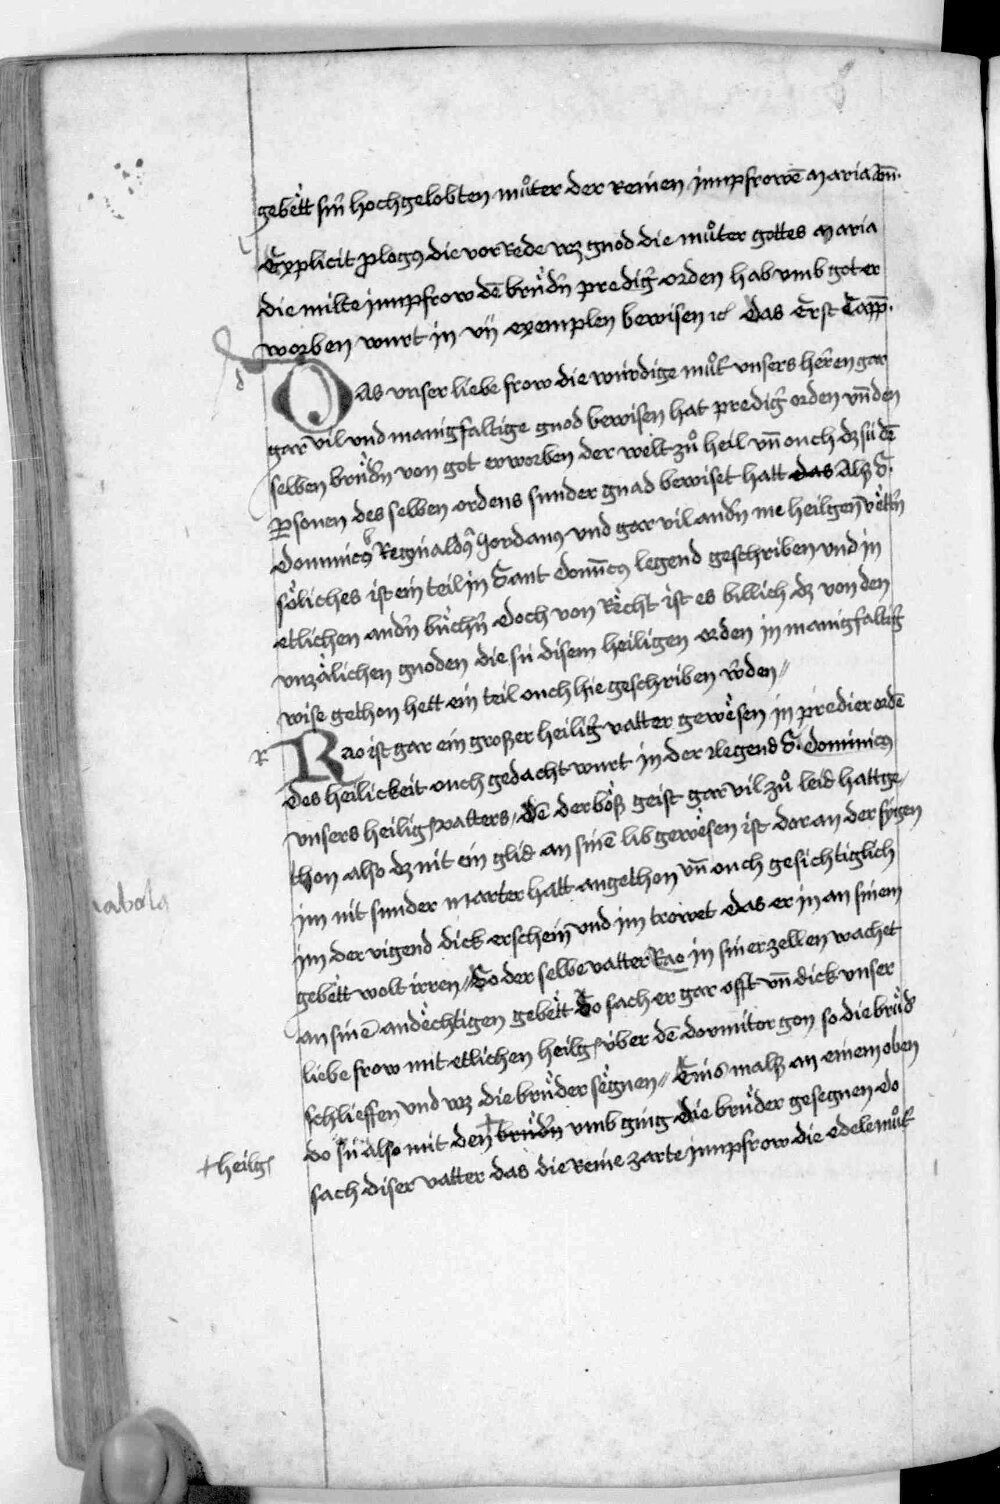 gebëtt sin̄ hochgelobten mu̽ter der reinen junpfrowē maria Am̄.
Explicit plogꝰ die vor rede wz gnod die mu̽ter gottes maria
die milte junpfrow dē bru̽dn̄ prediḡ orden hab vmb got er
worben wurt in vij exemplen bewisen ⁊c Das Erst Capp̄.
DAs vnser liebe frow die würdige mu̽t̄ vnsers herren gar
gar vil vnd manigfaltige gnod bewisen hat prediḡ orden vn̄ den
selben brüdn̄ von got erworben der welt zu̽ heil vn̄ ouch dz sü dē
psonen des selben ordens sunder gnad bewiset hatt das Alz S.
Dominicꝰ Reginaldꝰ Jordanꝰ vnd gar vil andn̄ me heilgen vëttn̄
söliches ist ein teil in Sant Domīcꝰ legend geschriben vnd in
etlichen andn̄ büchn̄ Doch von Recht ist es billich dz von den
vnzälichen gnoden die sü disem heiligen orden in manigfaltiḡ
wise gethon hett ein teil ouch hie geschriben w̄den //
RRao ist gar ein großer heiliḡ vatter gewësen in predier ordē
des heilickeit ouch gedacht wurt in der legend S. dominicꝰ
vnsers heilig vatters / Dē der böß geist gar vil zu̽ leid hatt ge /
thon also dz nit ein glid an sinē lib gewësen ist dor an der fygen
im nit sunder marter hatt angethon vn̄ ouch gesichtiglich
im der vigend dick erschein̄ vnd im trowet das er in an sinem
gebëtt wolt irren // So der selbe vatter Rao in siner zellen wachet
an sinē andëchtigen gebëtt So sach er gar offt vn̄ dick vnser
liebe frow mit etlichen heilg über dē dormitor gon so die brüd̄
schlieffen vnd wz die brüder sëgnen // Eins malz an einem oben
do sü also mit den + brüdn̄ vmb ging die brüder gesegnen do
+ heilg
sach diser vatter das die reine zarte junpfrow die edele mu̽t̄